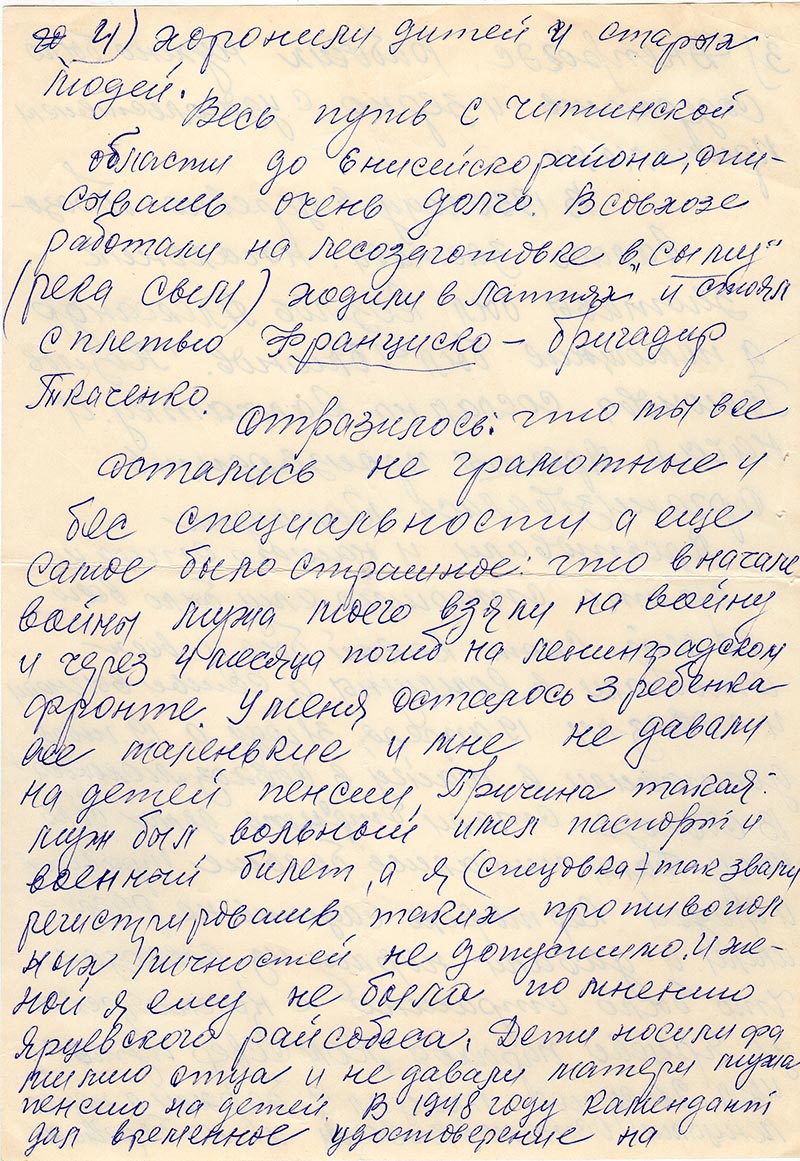 4) хоронили дитей и старых
людей.
Весь путь с Читинской
области до Енисейскорайона, опи-
сывашь очень долго. В совхозе
работали на лесозаготовке в „сыму“
(река сым) ходили в лаптях и стоял
с плетью Франциско – бригадир
Ткаченко.
отразилось: что мы все
остались не грамотные и
бес специальности а еще
самое было страшное: что в начале
войны мужа моего взяли на войну
и через 4 месяца погиб на ленинградском
фронте. У меня осталось 3 ребёнка
все маленькие и мне не давали
на детей пенсии, Причина такая:
муж был вольный имел паспорт и
военный билет, а я (спецовка – так звали
регистрировашь таких противопол
ных личностей не допустимо. И же-
ной я ему не была по мнению
Ярцевского райсобеса. Дети носили фа
милию отца и не давали матери мужа
пенсию на детей. В 1948 году камендант
дал временное удостоверение на